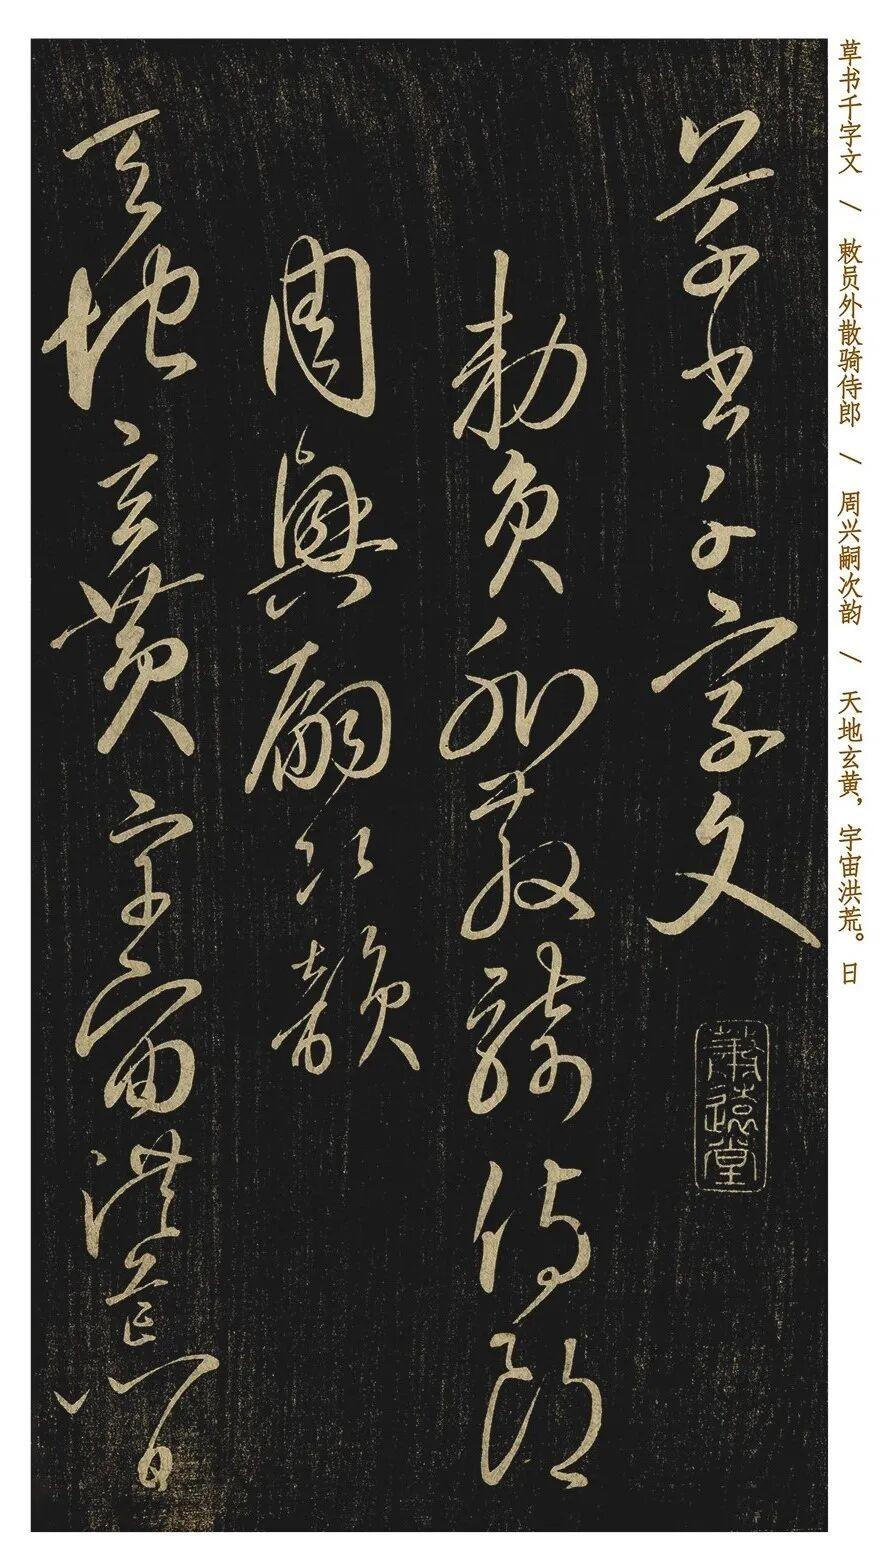 草书千字文 \ 敕员外散骑侍郎 \ 周兴嗣次韵 \ 天地玄黄，宇宙洪荒。日
草書千字文
勅員外散騎侍郎
周興嗣次韻
天地玄黃宇宙洪荒日